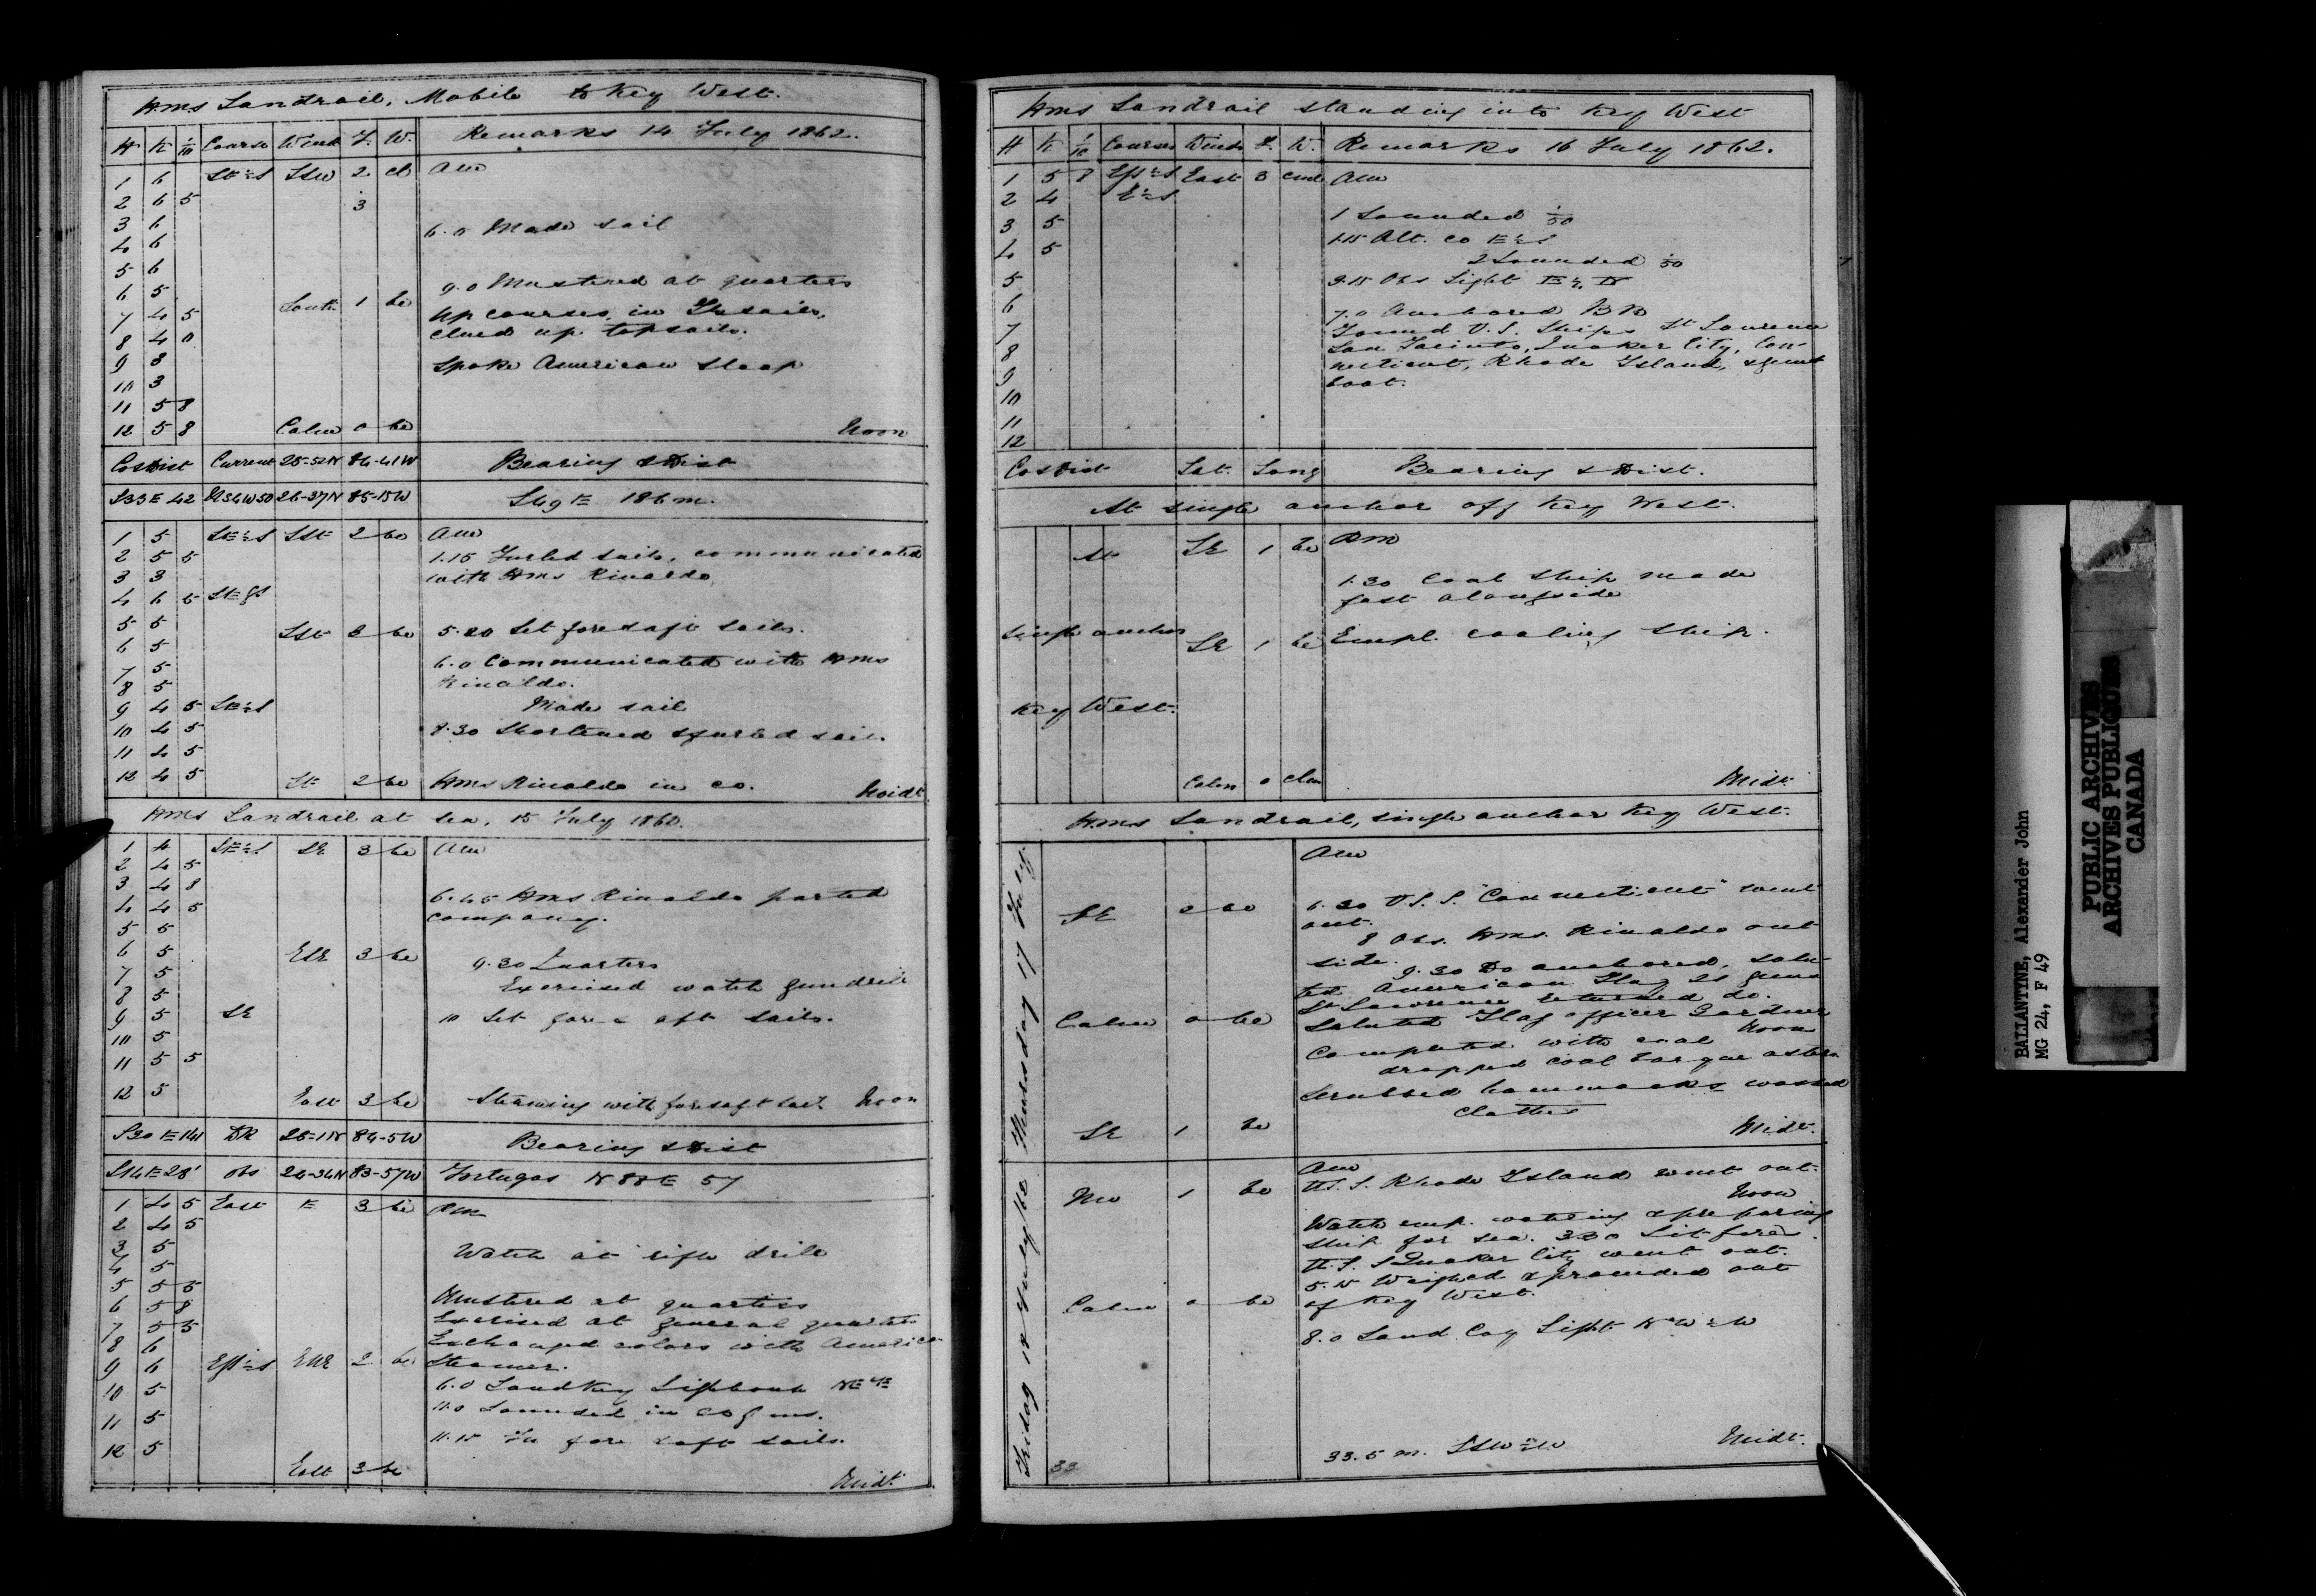 HMS Landrail, Mobile to Key West.
H K 1/10 Course Wind F. W. Remarks 14 July 1862.
1 6 SSW 2 AM
2 6 5 3
3 6 6.0 Made sail
4 6
5 6 9.0 Mustered at quarters
6 5 South 1 bc
7 4 5 Up courses, in
8 4 0 clued up topsails.
9 3 Spoke American Sloop
10 3
11 5 8
12 5 8 Calm 0 bc Noon
Co & Dist Current 25-52N 84-41W Bearing & Dist
S33E 42 26-37N 85-15W S49E 186 m.
1 5 2 bc
2 5 5 1.15 Furled sails, communicated
3 3 with HMS Rinaldo
4 6 5
5 5 3 bc 5.20 Set fore & aft sails.
6 5
7 5 6.0 Communicated with HMS
8 5 Rinaldo.
9 4 5 Made sail
10 4 5 8.30 Shortened & furled sail.
11 4 5
12 4 5 2 bc HMS Rinaldo in co. Midt
HMS Landrail at Sea, 15 July 186
1 4 SE 3 bc AM
2 4 5
3 4 8 6.45 HMS Rinaldo parted
4 4 5 company.
5 5
6 5 ESE 3 bc 9.30 Quarters
7 5 Exercised watch gundrill
8 5
9 5 SE 10 Set fore & aft sails.
10 5
11 5 5
12 5 East 3 bc Steaming with fore & aft sail Noon
S30E 141 DR 25-1N 84-5W Bearing & Dist
S14E 28' obs 24-34N 83-57W Tortugas N88E 57
1 4 5 East E 3 bc PM
2 4 5
3 5 Watch at rifle drill
4 5
5 5 5
6 5 8 Mustered at quarters
7 5 5 Exercised at general quarters
8 6 Exchanged colors with American
9 6 ENE 2 bc Steamer.
10 5 6.0 Sand Key Lighthouse
11 5 11.0 Sounded in
12 5 11.15 In fore & aft sails.
East 3 bc Midt
HMS Landrail standing into Key West
H K 1/10 Courses Winds F. W. Remarks 16 July 1862.
1 5 8 East 3 AM
2 4
3 5 1 Sounded 50
4 5 1.15 Alt. co
5 2 Sounded 50
6 3.15 Obs Light
7 7.0 Anchored
8 Found U.S. Ships St Lawrence
9 San Jacinto, Quaker City, Con-
10 necticut, Rhode Island, & gun
11 boat.
12
Co & Dist Lat. Long Bearing & Dist.
At single anchor off Key West.
At SE 1 bc PM
1.30 Coal Ship made
fast alongside
Single anchor SE 1 bc Empl. coaling ship.
Key West.
Calm 0 Midt.
HMS Landrail, single anchor Key West.
Thursday 17 July
AM
SE 2 bc 6.30 U.S.S. "Connecticut" went
out.
8 Obs. HMS. Rinaldo out
side.
9.30 Do anchored, salu-
ted American Flag 21 guns
St Lawrence returned do.
Calm 0 bc Saluted Flag officer Gardner
Noon
Completed with coal
dropped coal barque astern
Scrubbed hammocks & washed
clothes
SE 1 bc Midt.
Friday 18 July 1862
AM
1 bc U.S.S. Rhode Island went out.
Noon
Watch emp. watering & preparing
ship for sea. 3.30 Lit fires.
U.S.S Quaker City went out.
5.15 Weighed & proceeded out
Calm 0 bc of Key West.
8.0 Sand Cay Light
33.5 m. Midt.
33
BALLANTYNE, Alexander John
MG 24, F 49
PUBLIC ARCHIVES
ARCHIVES PUBLIQUES
CANADA